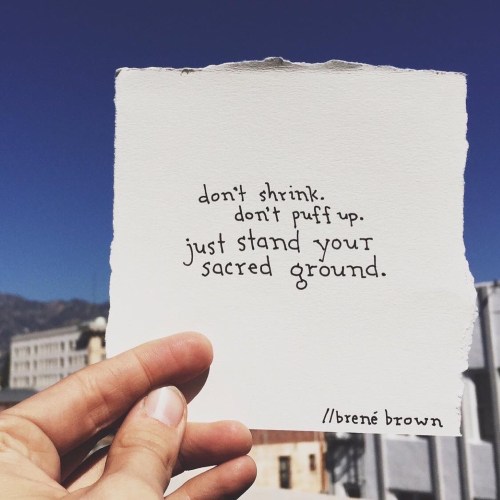 don't shrink.
don't puff up.
just stand your
sacred ground.
//brené brown